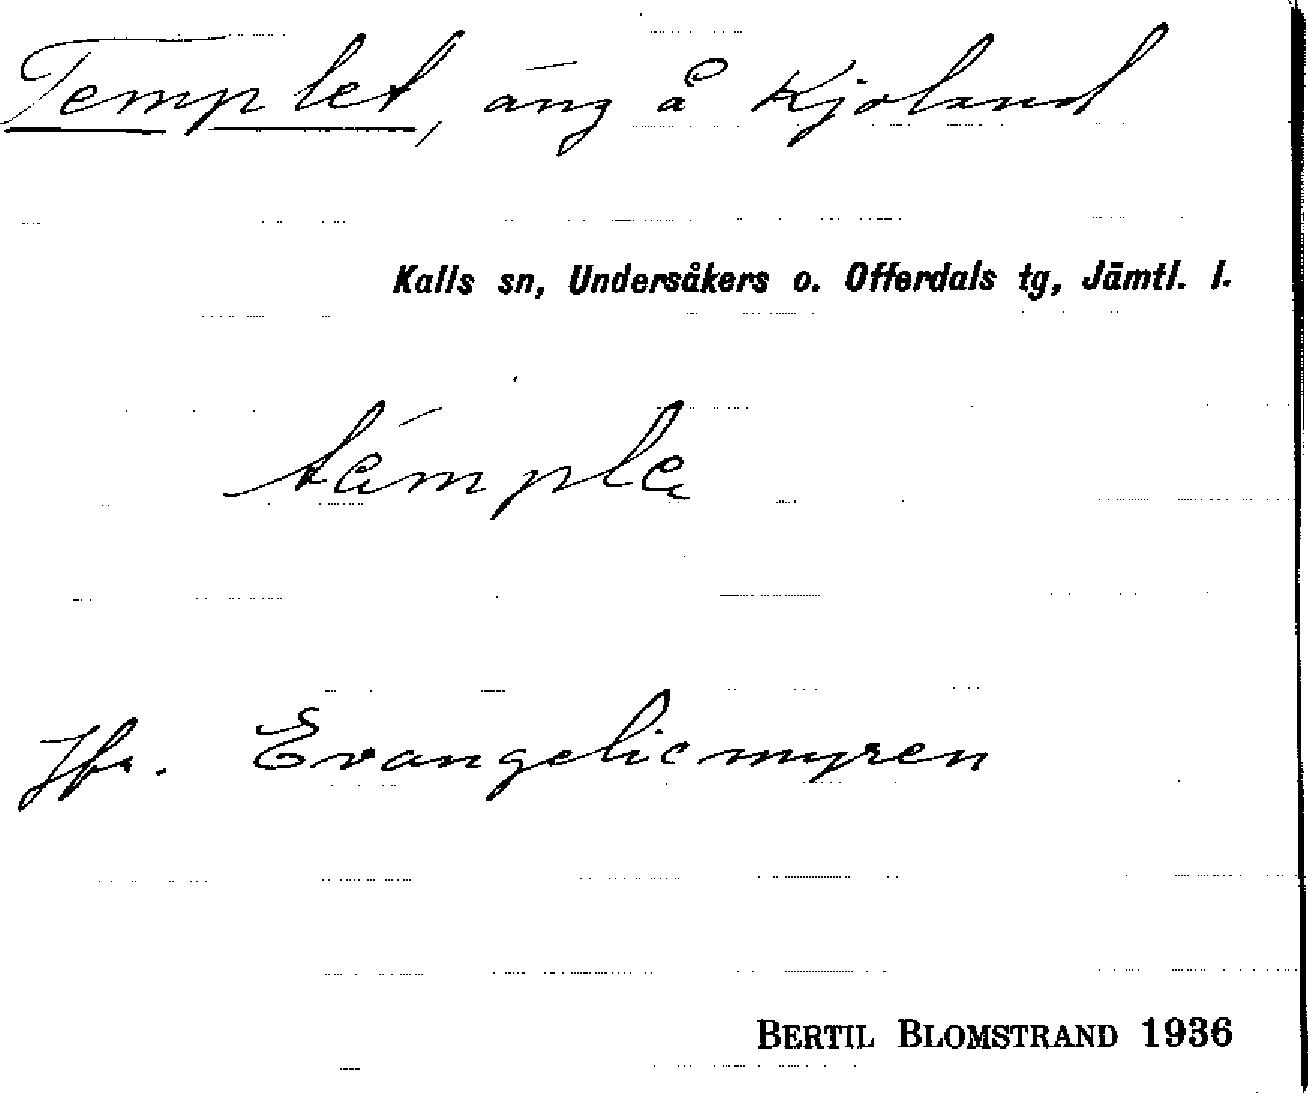 Templet, äng å Kjoland
Kalls sn, Undersåkers o. Offerdals tg, Jämtl. l.
Jfr. Evangeliemyren
BERTIL BLOMSTRAND 1936